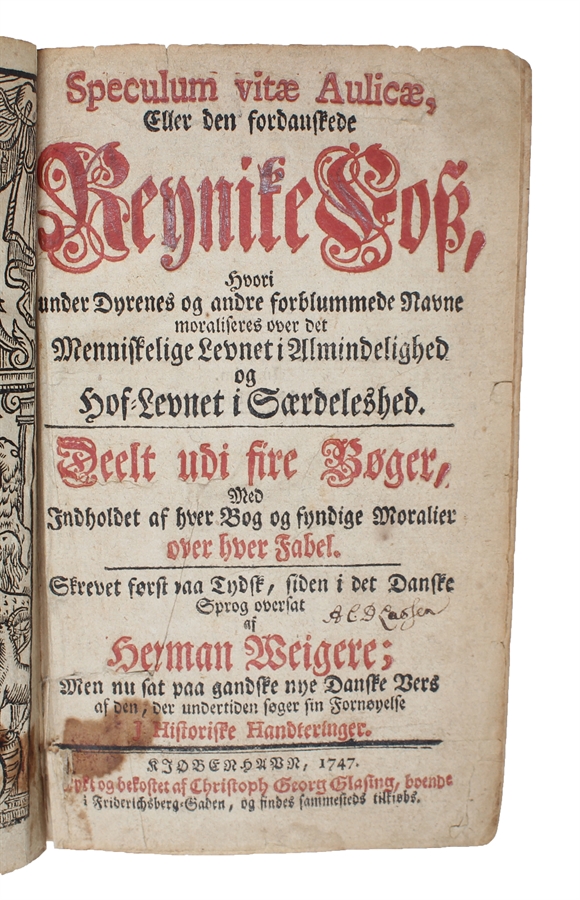 Speculum vitæ Aulicæ,
Eller den fordanskede
Reynike Foß,
Hvori
under Dyrenes og andre forblummede Navne
moraliseres over det
Menniskelige Levnet i Almindelighed
og
Hof-Levnet i Særdeleshed.
Deelt udi fire Bøger,
Med
Indholdet af hver Bog og fyndige Moralier
over hver Fabel.
Skrevet først paa Tydsk, siden i det Danske
Sprog oversat
af
Herman Weigere;
Men nu sat paa gandske nye Danske Vers
af den, der undertiden søger sin Fornøyelse
I Historiske Handteringer.
KIØBENHAVN, 1747.
og bekostet af Christoph Georg Glasing, boende
i Friderichsberg-Gaden, og findes sammesteds tilkiøbs.